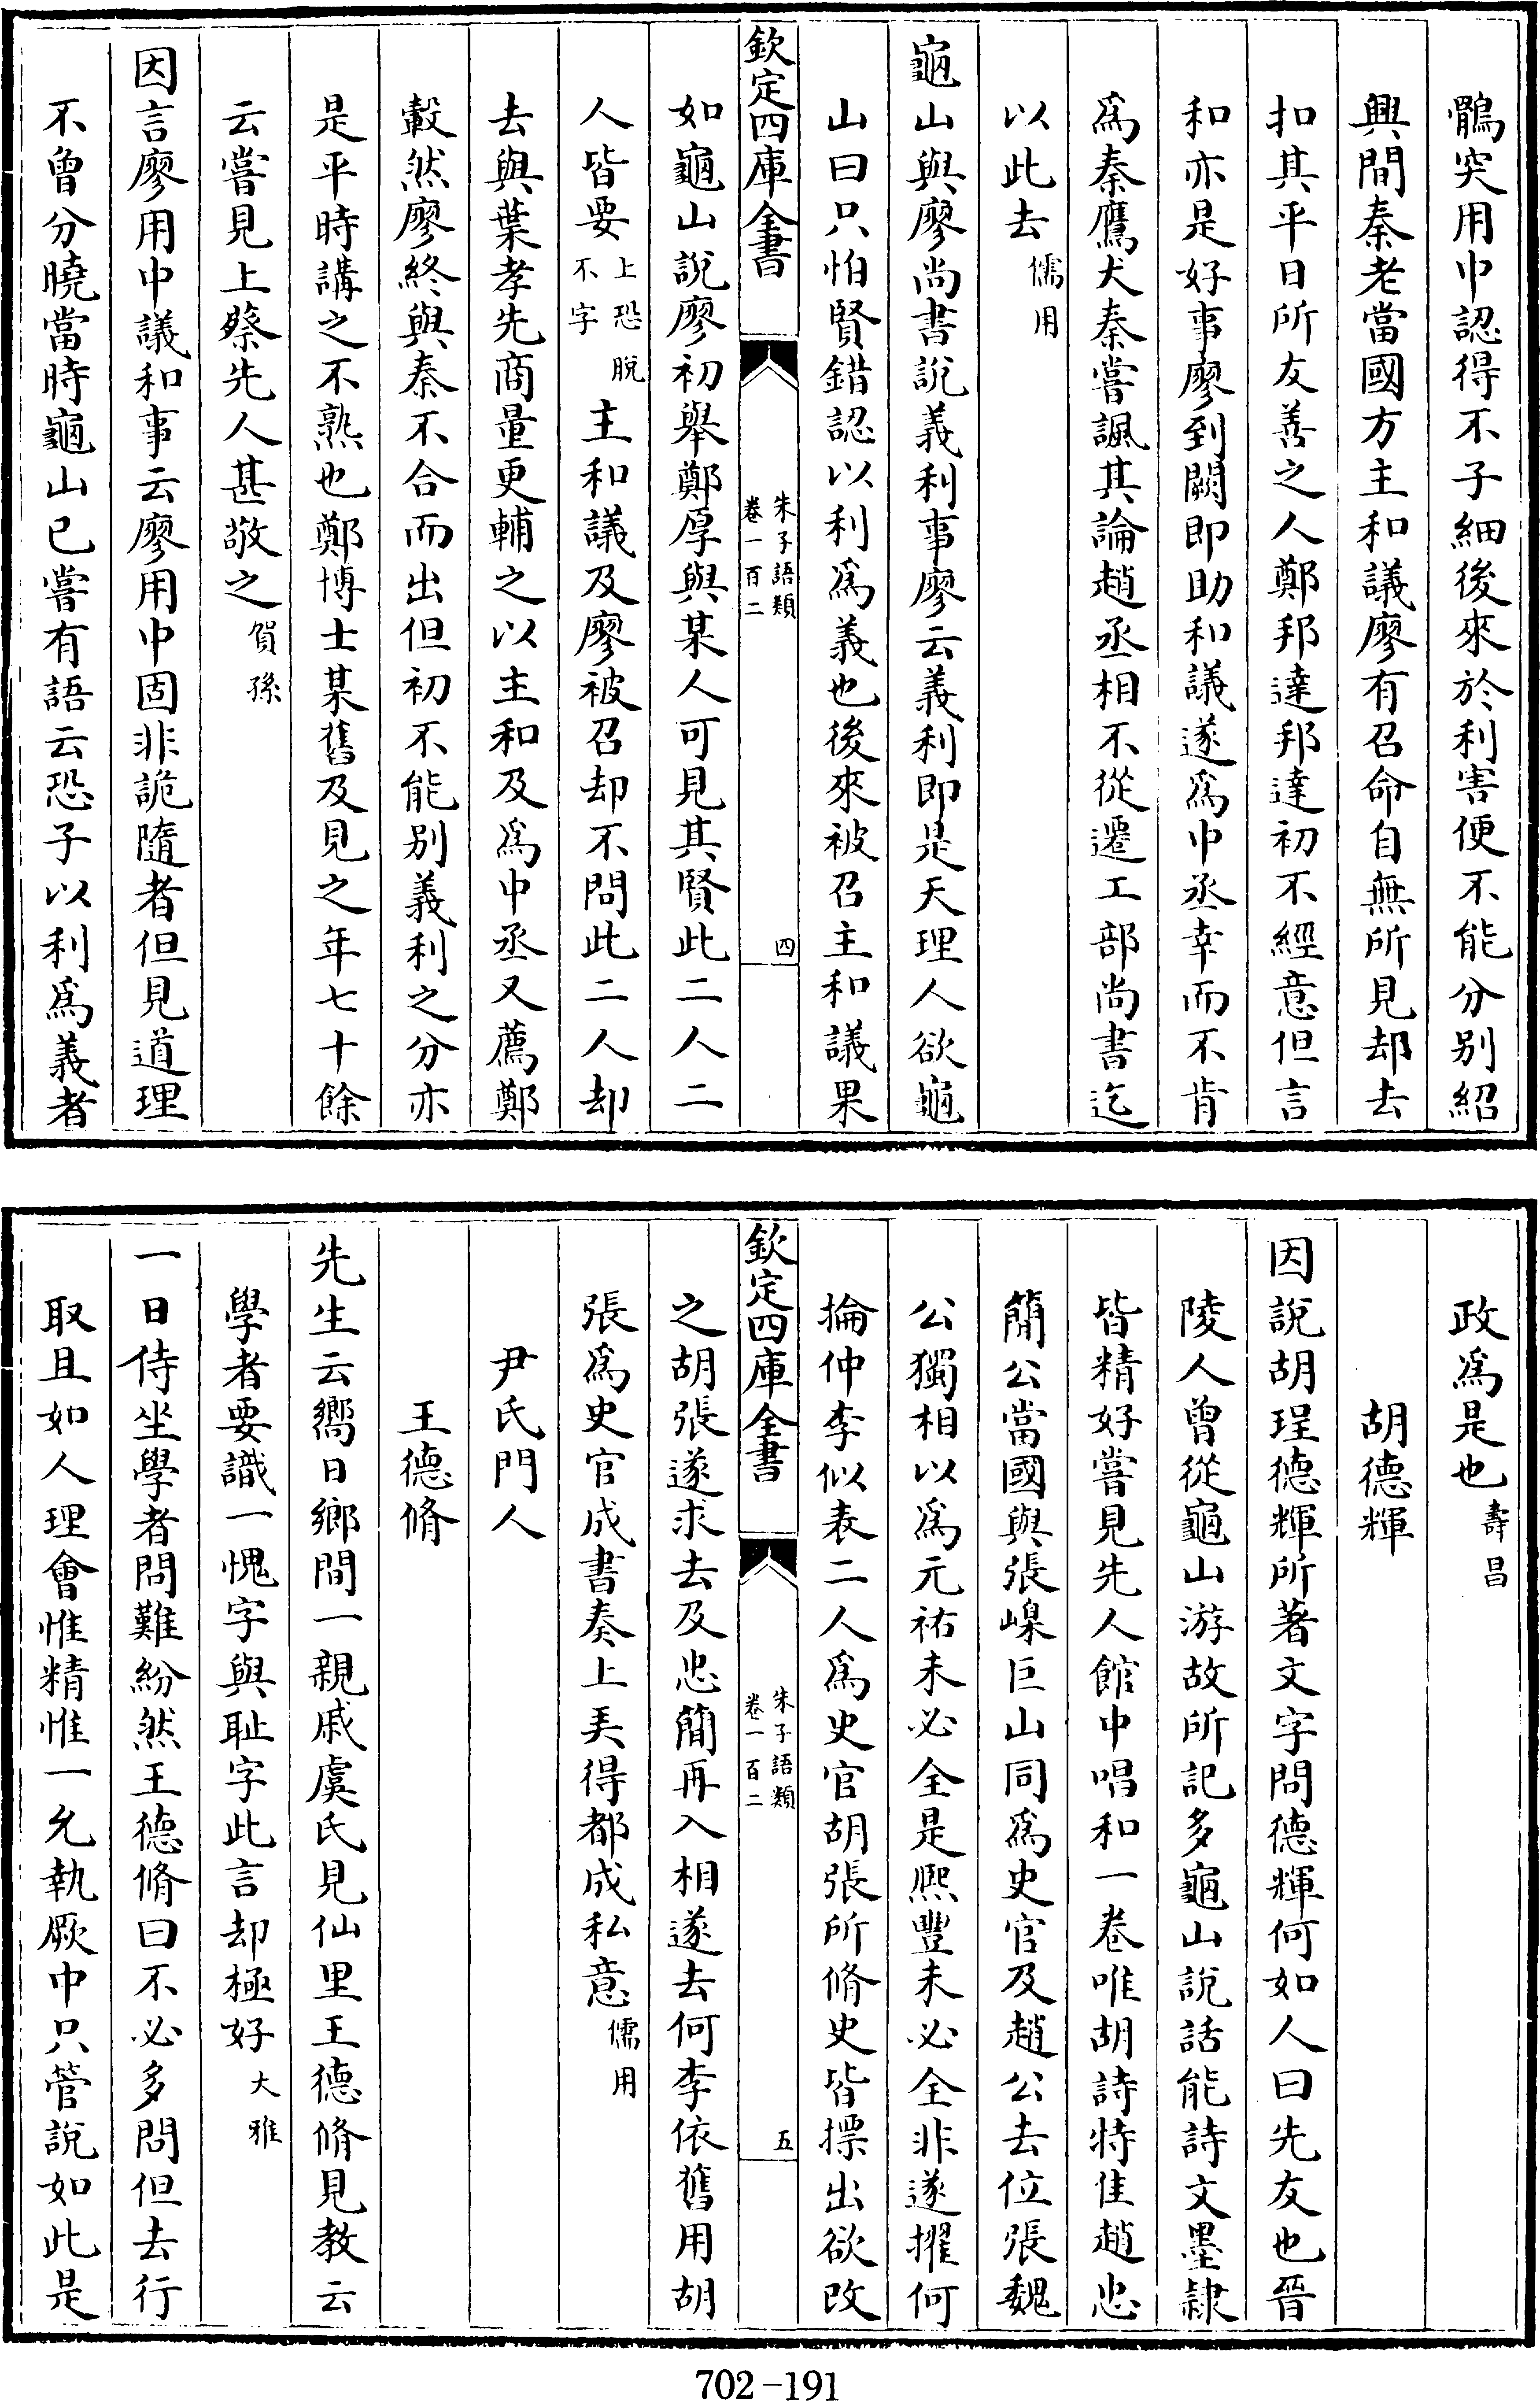 鶻突用中認得不子細後來於利害便不能分别紹
興間秦老當國方主和議廖有召命自無所見却去
扣其平日所友善之人鄭邦達邦達初不經意但言
和亦是好事廖到闕即助和議遂為中丞幸而不肯
為秦鷹犬秦嘗諷其論趙丞相不從遷工部尚書迄
以此去儒用
龜山與廖尚書說義利事廖云義利即是天理人欲龜
山曰只怕賢錯認以利為義也後來被召主和議果
欽定四庫全書
朱子語類
卷一百二
四
如龜山說廖初舉鄭厚與某人可見其賢此二人二
人皆要上恐脫不字主和議及廖被召却不問此二人却
去與葉孝先商量更輔之以主和及為中丞又薦鄭
轂然廖終與秦不合而出但初不能别義利之分亦
是平時講之不熟也鄭博士某舊及見之年七十餘
云嘗見上蔡先人甚敬之賀孫
因言廖用中議和事云廖用中固非詭隨者但見道理
不曾分曉當時龜山已嘗有語云恐子以利為義者
政為是也壽昌
胡德輝
因說胡珵德輝所著文字問德輝何如人曰先友也晉
陵人曾從龜山游故所記多龜山說話能詩文墨隸
皆精好嘗見先人館中唱和一卷唯胡詩特佳趙忠
簡公當國與張嵲巨山同為史官及趙公去位張魏
公獨相以為元祐未必全是熙豐未必全非遂擢何
掄仲李似表二人為史官胡張所脩史皆摽出欲改
欽定四庫全書
朱子語類
卷一百二
五
之胡張遂求去及忠簡再入相遂去何李依舊用胡
張為史官成書奏上美得都成私意儒用
尹氏門人
王德脩
先生云嚮日鄉間一親戚虞氏見仙里王德脩見教云
學者要識一愧字與耻字此言却極好大雅
一日侍坐學者問難紛然王德脩曰不必多問但去行
取且如人理會惟精惟一允執厥中只管說如此是
702-191